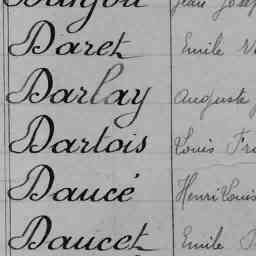 Daret Emile
Darlay Auguste
Dartois Louis
Daucé Henri Louis
Daucet Emile